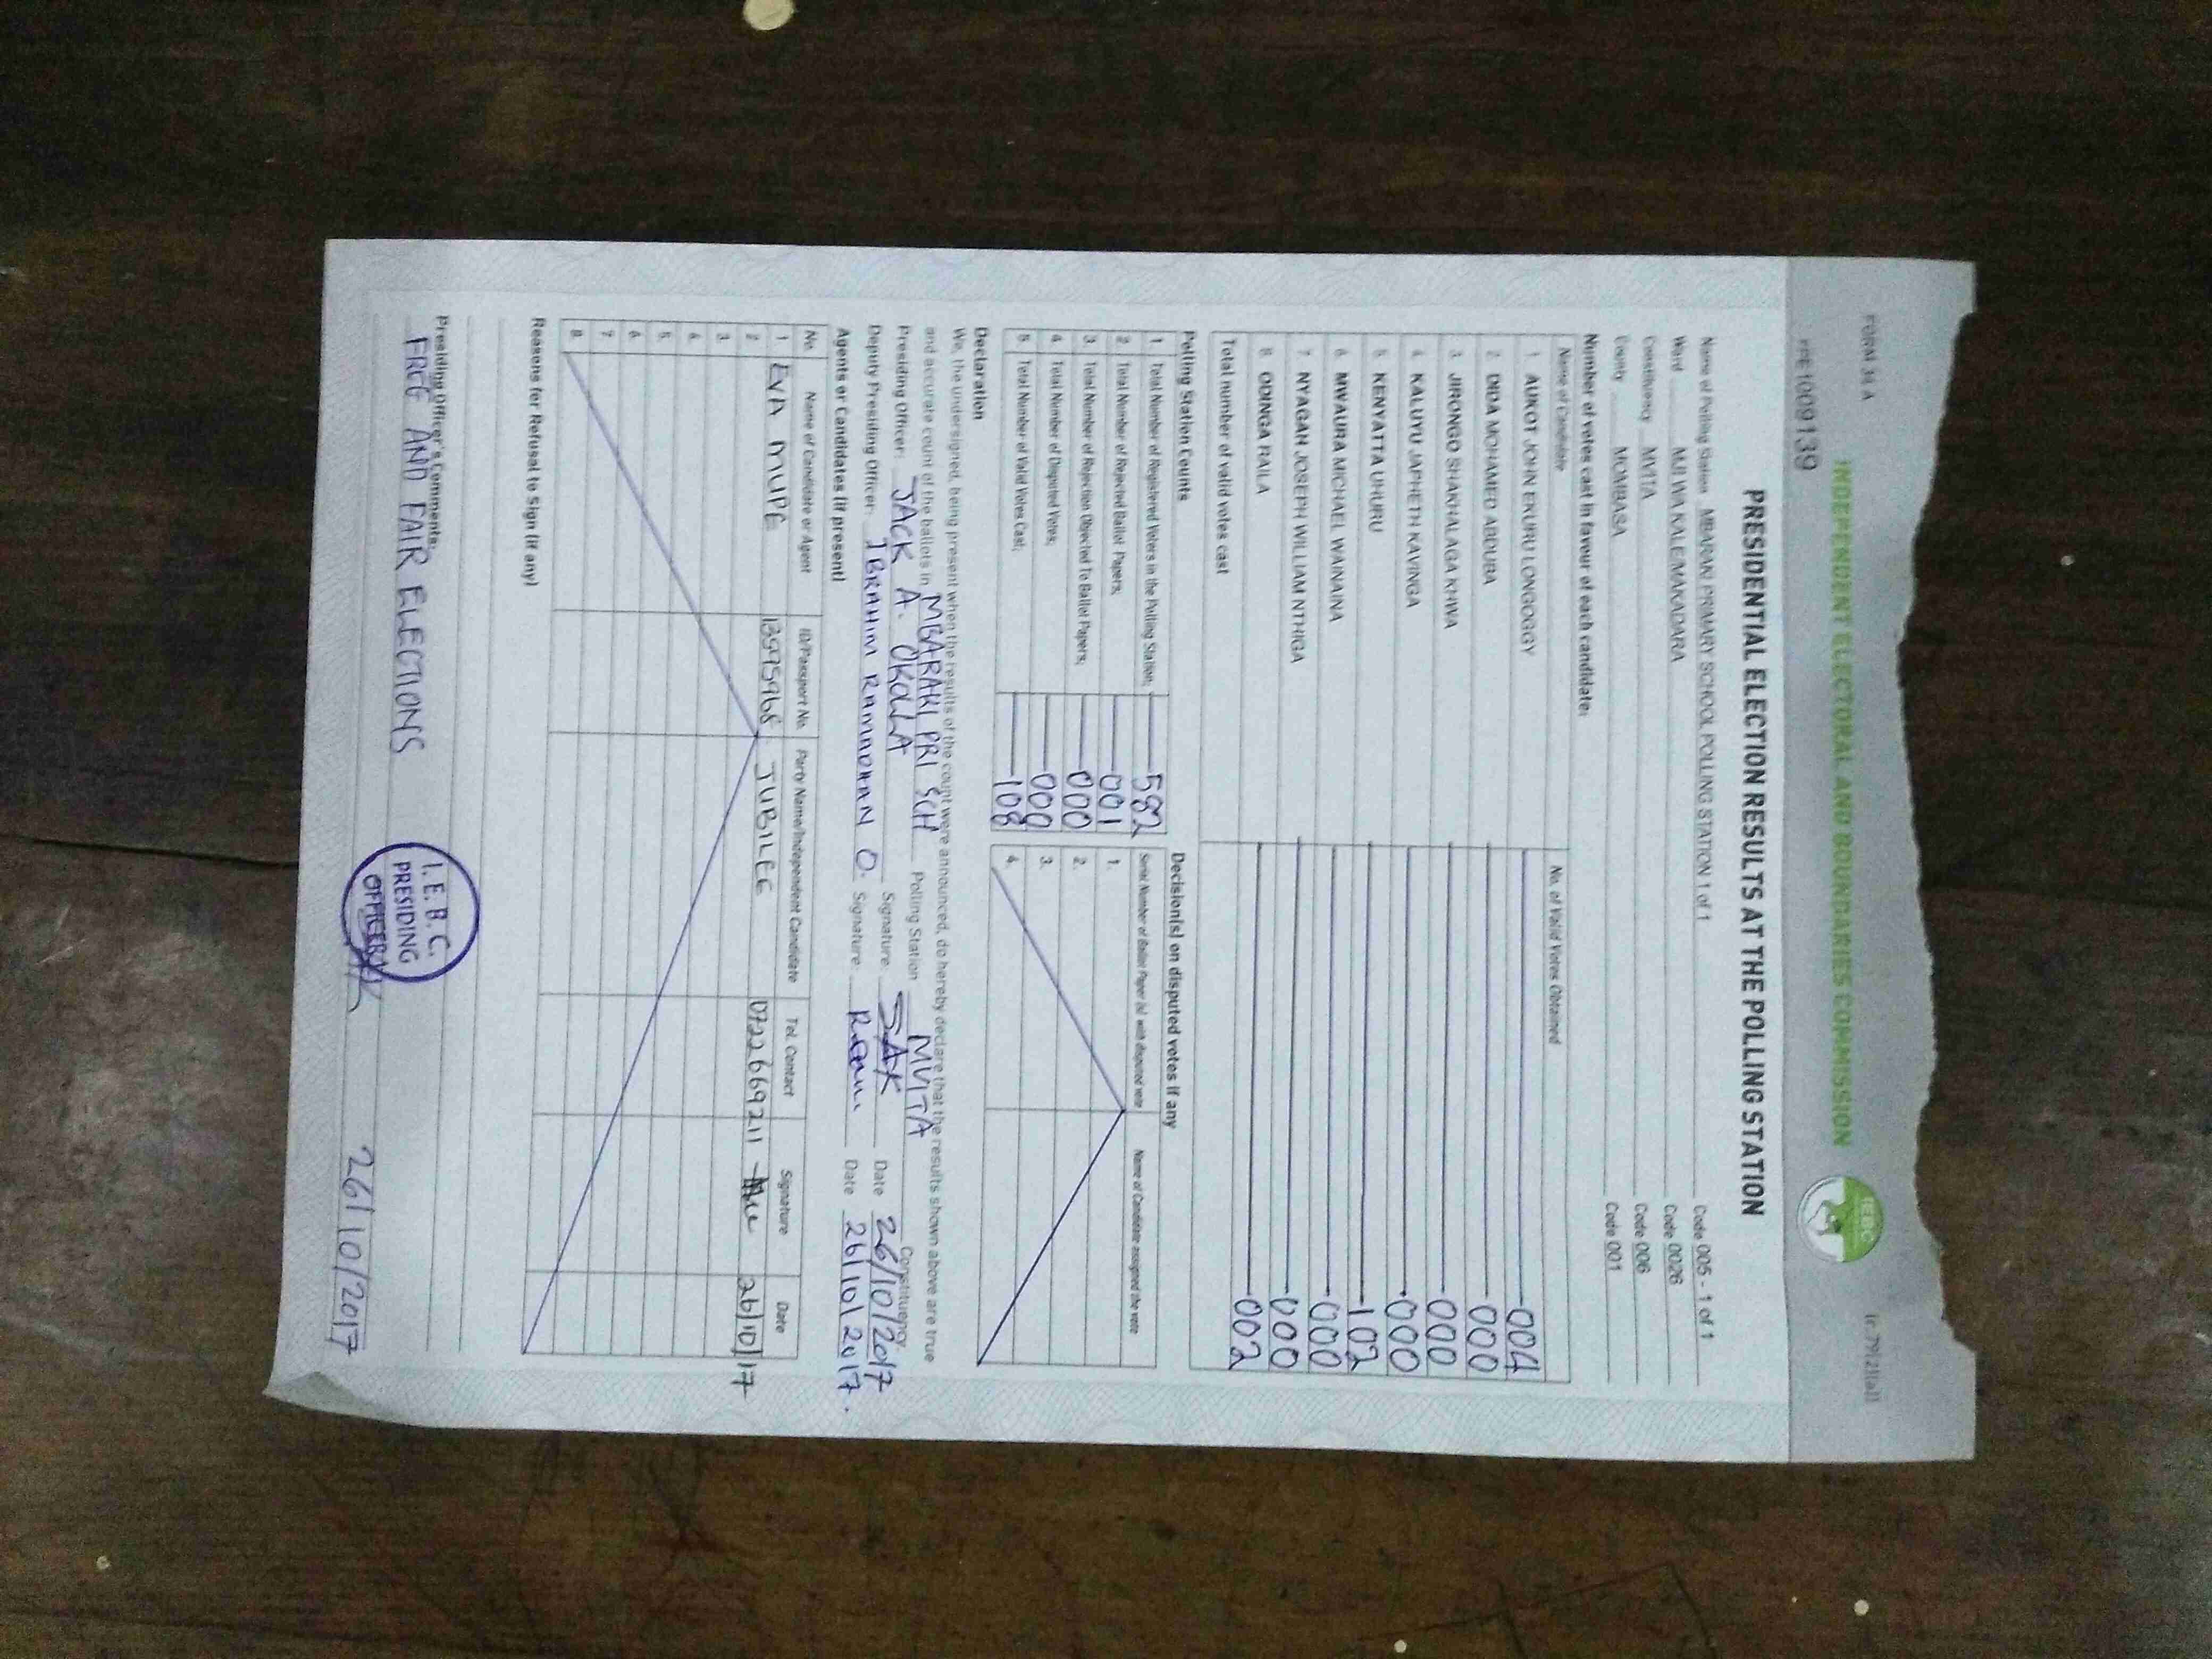 FORM 34 A
INDEPENDENT ELECTORAL AND BOUNDARIES COMMISSION
IEBC
(r. 79(2)(a))
PRESIDENTIAL ELECTION RESULTS AT THE POLLING STATION
Name of Polling Station MBARAKI PRIMARY SCHOOL POLLING STATION 1 of 1 Code 005 - 1 of 1
Ward MJI WA KALE/MAKADARA Code 0026
Constituency MVITA Code 006
County MOMBASA Code 001
Number of votes cast in favour of each candidate:
Name of Candidate No. of Valid Votes Obtained
1. AUKOT JOHN EKURU LONGOGGY 004
2. DIDA MOHAMED ABDUBA 000
3. JIRONGO SHAKHALAGA KHWA 000
4. KALUYU JAPHETH KAVINGA 000
5. KENYATTA UHURU 102
6. MWAURA MICHAEL WAINAINA 000
7. NYAGAH JOSEPH WILLIAM NTHIGA 000
8. ODINGA RAILA 002
Total number of valid votes cast
Polling Station Counts
1. Total Number of Registered Voters in the Polling Station; 582
2. Total Number of Rejected Ballot Papers; 001
3. Total Number of Rejection Objected To Ballot Papers; 000
4. Total Number of Disputed Votes; 000
5. Total Number of Valid Votes Cast; 108
Decision(s) on disputed votes if any
Serial Number of Ballot Paper (s) with disputed vote Name of Candidate assigned the vote
1.
2.
3.
4.
Declaration
We, the undersigned, being present when the results of the count were announced, do hereby declare that the results shown above are true
and accurate count of the ballots in MBARAKI PRI SCH Polling Station MVITA Constituency
Presiding Officer: JACK A. OKOLLA Signature: Date 26/10/2017
Deputy Presiding Officer: IBRAHIM RAMADHAN O. Signature: Date 26/10/2017.
Agents or Candidates (if present)
No. Name of Candidate or Agent ID/Passport No. Party Name/Independent Candidate Tel. Contact Signature Date
1 EVA MUPE 13595968 JUBILEE 0722669211 26/10/17
2
3
4
5
6
7
8
Reasons for Refusal to Sign (if any)
Presiding Officer's Comments:
FREE AND FAIR ELECTIONS
I.E.B.C.
PRESIDING
OFFICER
26/10/2017